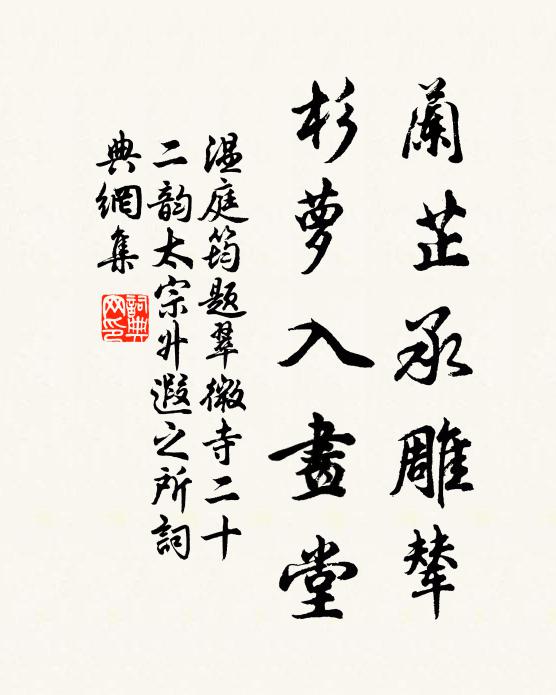 蘭芷承雕輦
杉蘿入畫堂
温庭筠題翠微寺二十
二韵太宗升遐之所詞
典網集
詞典网印